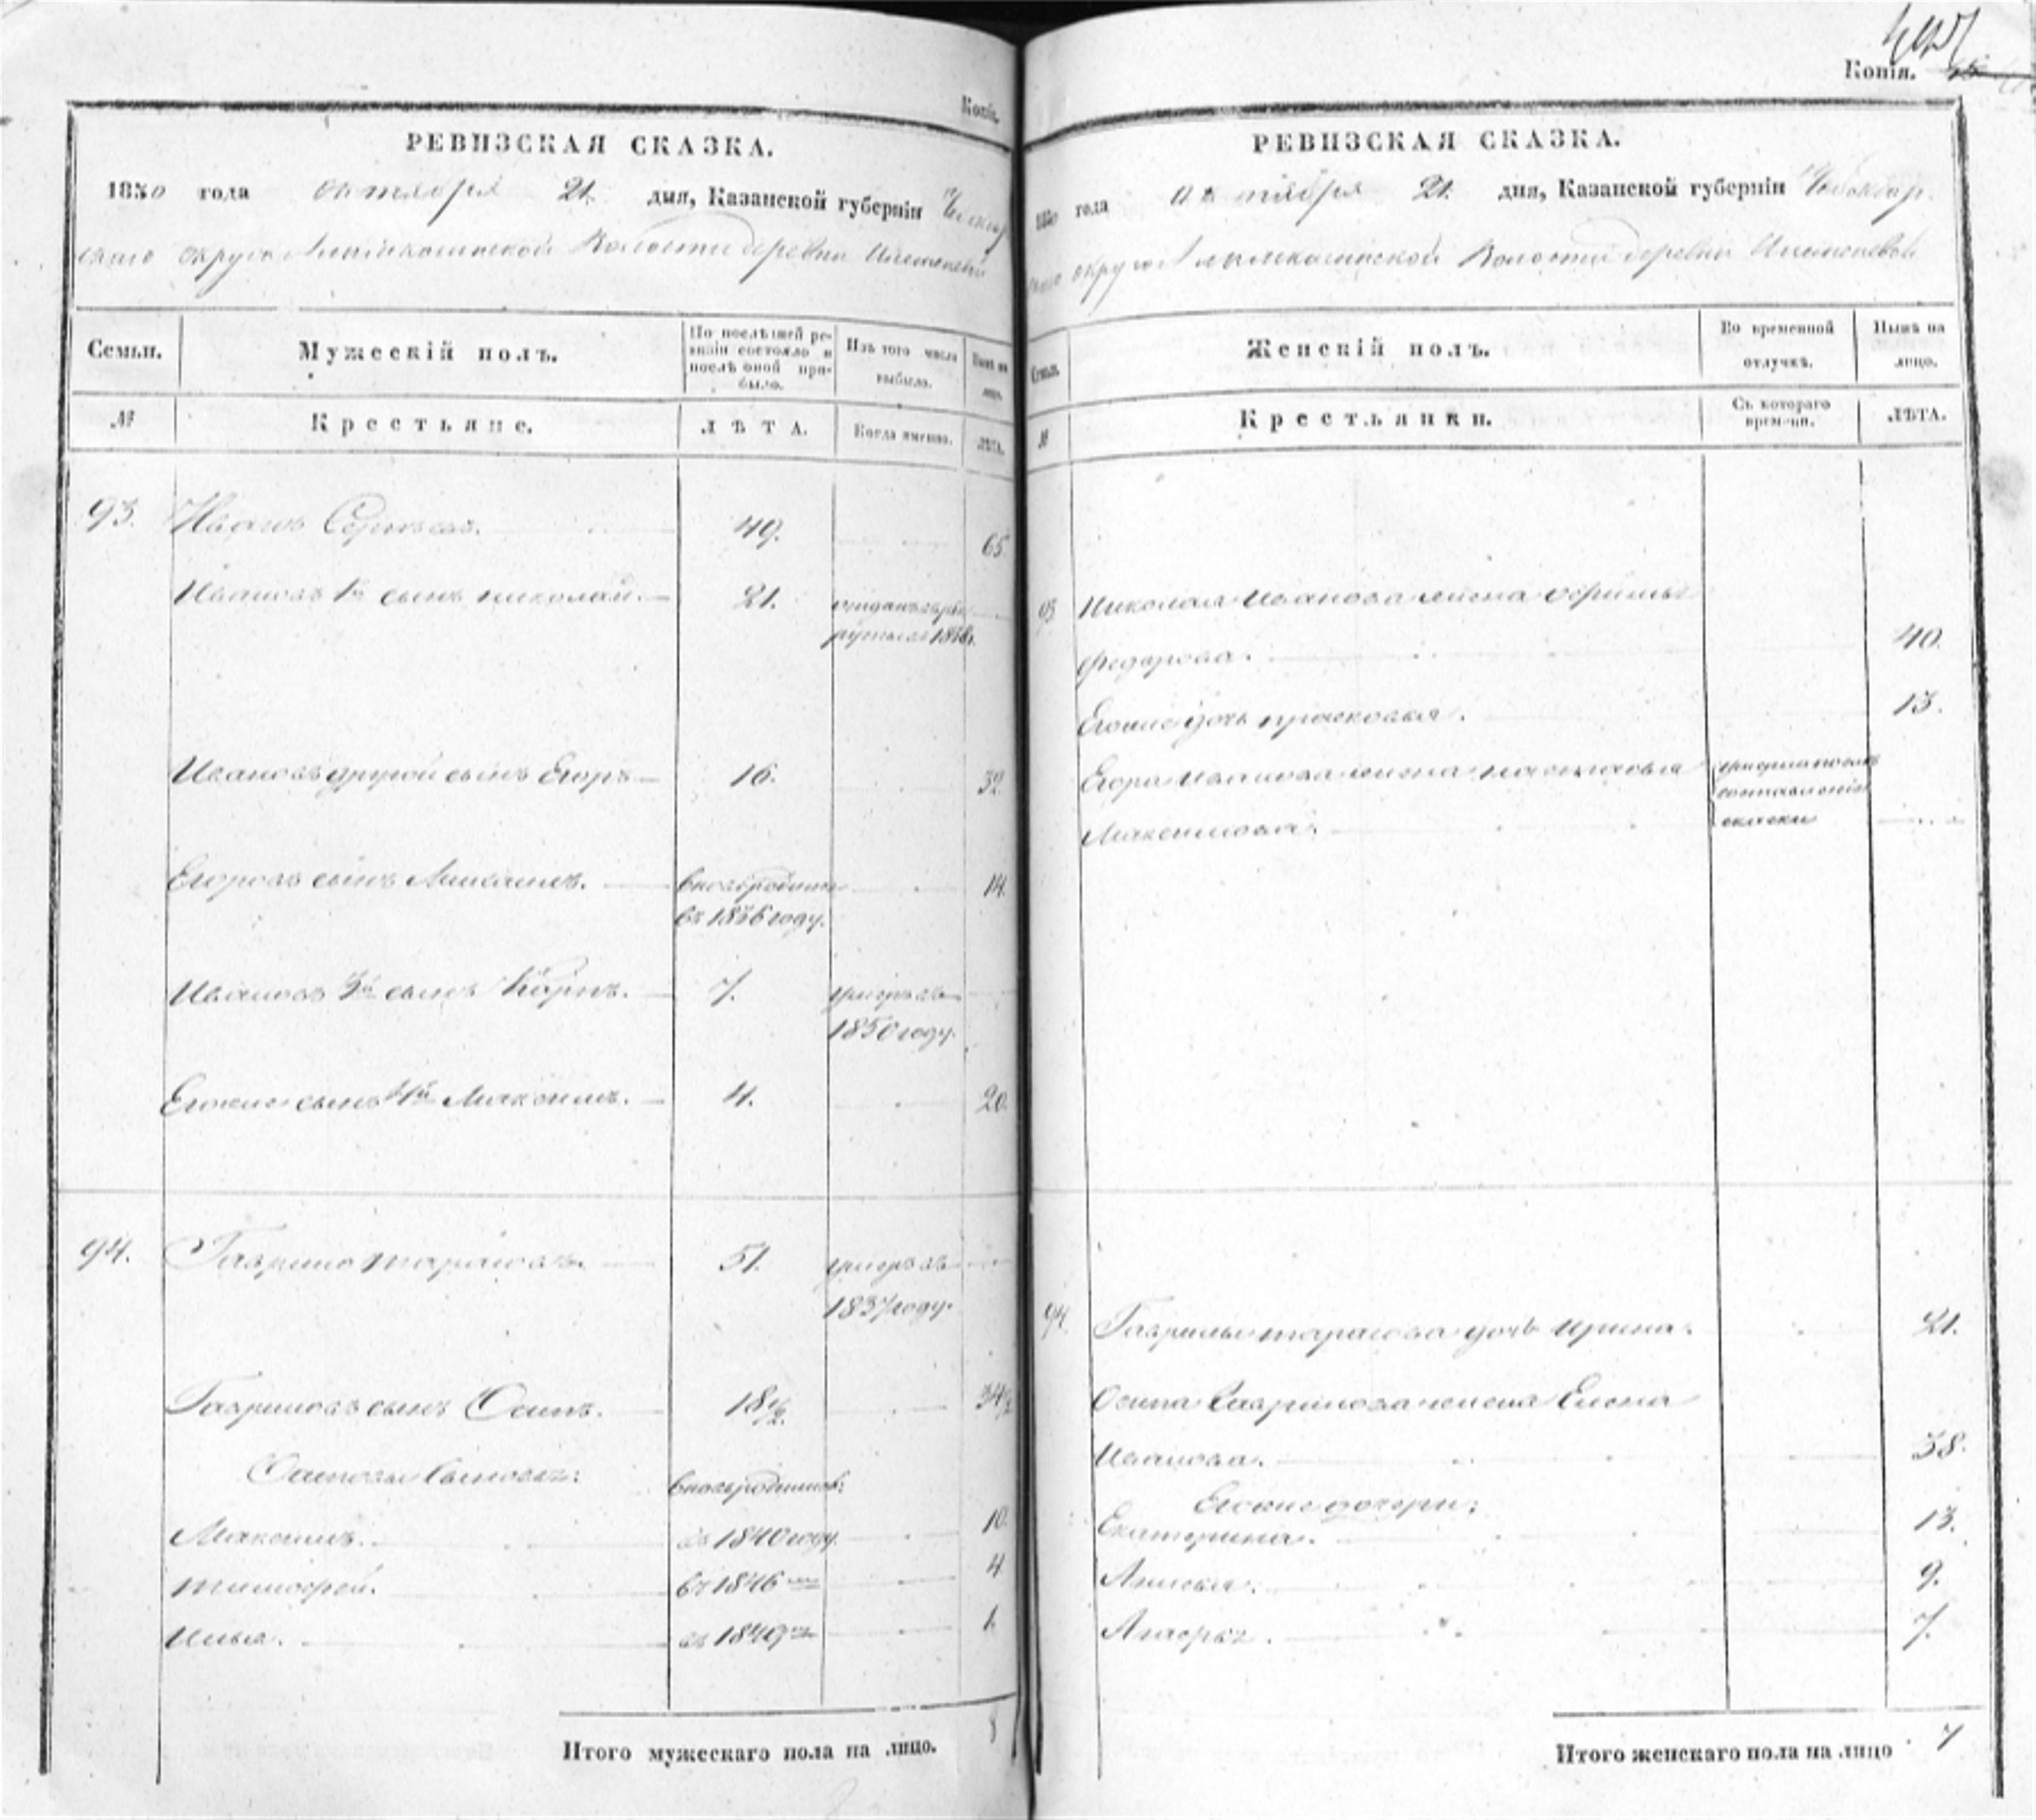 Копія.
РЕВИЗСКАЯ СКАЗКА.
1850 года октября 21. дня, Казанской губерніи Чебоксар
скаго округа волости деревни
Семьи.
Мужескій полъ.
По послѣдней ре-
визіи состояло и
послѣ оной при-
было.
Изъ того числа
выбыло.
Нынѣ на
лицо.
№
Крестьяне.
ЛѢТА.
Когда именно.
ЛѢТА.
93. Иванъ Сергѣевъ. 49. 65
Ивановъ 1й сынъ николай. 21. отданъ въ рек
руты въ
Ивановъ другой сынъ Егоръ 16. 32.
Егоровъ сынъ 14.
въ 1836 году.
Ивановъ 3й сынъ Карпъ. 7. умеръ въ
1850 году.
Егоже сынъ 4й Максимъ. 4. 20.
94. Гаврило тарасовъ. 51. умеръ въ
1837 году.
Гавриловъ сынъ Осипъ. 18½. 34½
Осиповы сыновья: вновьрожденны:
Максимъ. въ 1840 году 10.
тимофей. въ 1846 4
илья. въ 1849 1.
Итого мужескаго пола на лицо. 8
Копія.
РЕВИЗСКАЯ СКАЗКА.
1850 года октября 21. дня, Казанской губерніи Чебоксар
скаго округа волости деревни
Семьи.
Женскій полъ.
Во временной
отлучкѣ.
Нынѣ на
лицо.
№
Крестьянки.
Съ котораго
времени.
ЛѢТА.
93. Николая Иванова жена
федорова. 40.
Егоже дочь прасковья. 13.
Егора Иванова жена настасья
Максимова. сказки
94. Гаврилы тарасова дочь ирина. 21.
Осипа Гаврилова жена Елена
Иванова. 38.
Егоже дочери:
Екатерина. 13.
9.
7.
Итого женскаго пола на лицо 7